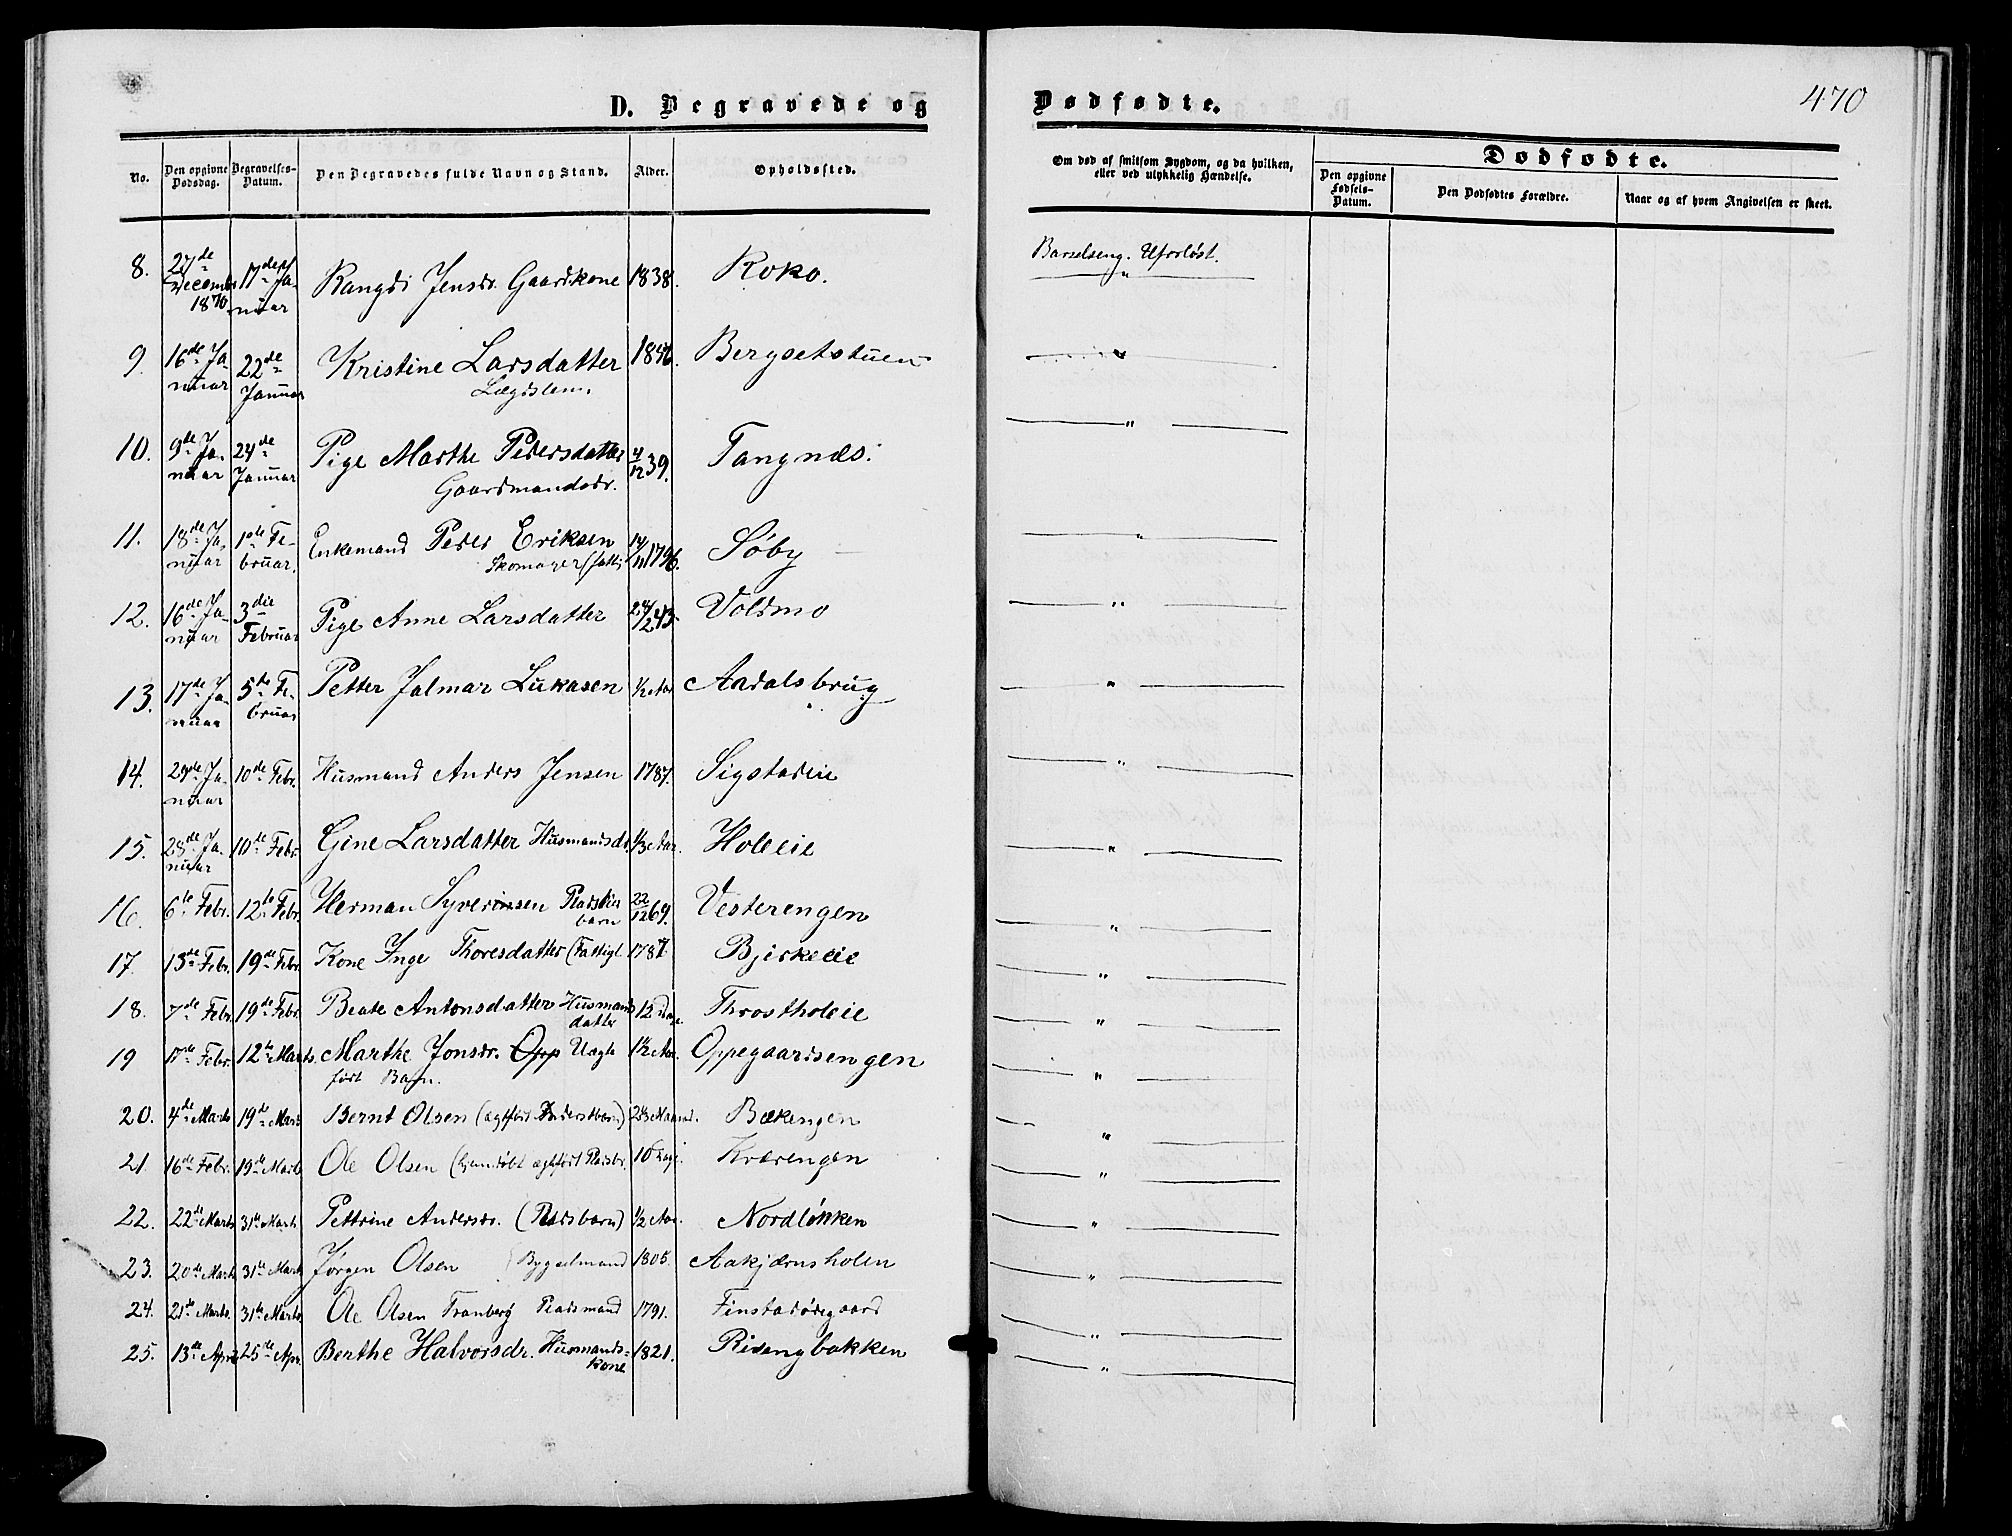 D. Begravede og Dødfødte.
470
No.
Den opgivne Dødsdag.
Begravelses-Datum.
Den Begravedes fulde Navn og Stand.
Alder.
Opholdssted.
Om død af smitsom Sygdom, og da hvilken, eller ved ulykkelig Hændelse.
Dødfødte.
Den opgivne Fødsels-Datum.
Den Dødfødtes Forældre.
Naar og af hvem Angivelsen er skeet.
8. 27de Decembr 1870. 17de Januar Rangdi Jensdr. Gaardkone 1838. Koko. Barselseng. Uforløst.
9. 16de Januar 22de Januar Kristine Larsdatter Lægdslem. Bergsetstuen "
10. 9de Januar 24de Januar Pige Marthe Pedersdatter Gaardmandsdr. 4/12 39. Tangnæs. "
11. 18de Januar 1ste Februar. Enkemand Peder Eriksen Skomager (fattig 14/11 1796. Søby "
12. 16de Januar 3die Februar Pige Anne Larsdatter 24/2 43. Voldmo "
13. 17de Januar 5te Februar Petter Jalmar Lukasen 1/2 Aar Aadalsbrug "
14. 29de Januar 10de Febr. Husmand Anders Jensen 1787. Sigstadeie "
15. 28de Januar 10de Febr. Gine Larsdatter Husmandsdr. 1/3 Aar. Holeeie "
16. 6te Febr. 12te Febr. Herman Syverinsen barn 22/12 69. Vesterengen "
17 13de Febr. 19de Febr. Kone Inge Thoresdatter (Fattigl 1787. Bjerkeeie "
18. 7de Febr. 19de Febr. Beate Antonsdatter Husmands datter 12 Dage Throstholeie "
19 17de Febr. 12te Marts. Marthe Jonsdr. Opp Uægte født Barn. 1 1/2 Aar. Oppegaardsengen "
20. 4de Marts 19de Marts Bernt Olsen (ægtefød Inderstbarn) Maaned. Bækengen "
21. 16de Febr. 19de Marts Ole Olsen (hjemdøbt ægtefødt Pladsbr. 10 Dage. Kværengen "
22. 22de Marts 31te Marts Pettrine Andersdr. (Pladsbarn) 1/2 Aar. Nordløkken "
23. 20de Marts 31te Marts Jørgen Olsen (Bygselmand 1805. Aakjærnsholen "
24. 21de Marts. 31te Marts. Ole Olsen Tranberg Pladsmand 1791. Finstadødegaard "
25. 13de April 25de Apr. Berthe Halvorsdr. Husmands=kone 1821. Risengbakken "